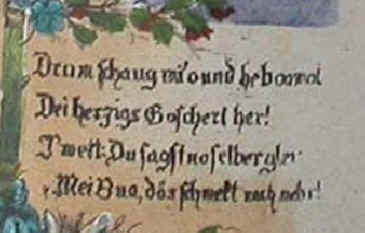 Drum schaug mi o und heb amol
Dei herzigs Goscherl her!
I' wett: Du sagst no selber glei
„Mei Bua, dös schmeckt nach mehr!